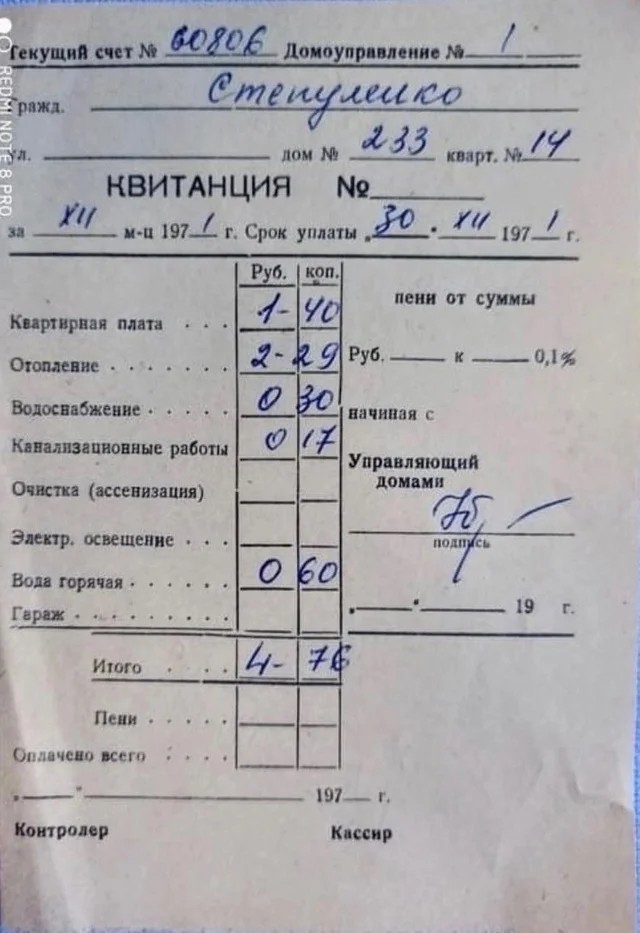 Текущий счет № 60806 Домоуправление № 1
Гражд. Степуленко
ул. дом № 233 кварт. № 14
КВИТАНЦИЯ №
за XII м-ц 1971 г. Срок уплаты „30" XII 1971 г.
Руб. коп.
Квартирная плата . . . 1- 40
пени от суммы
Отопление . . . . . . . 2- 29
Руб. к 0,1%
Водоснабжение . . . . . 0 30
начиная с
Канализационные работы 0 17
Управляющий домами
Очистка (ассенизация)
подпись
Электр. освещение . . .
Вода горячая . . . . . . 0 60
Гараж . . . . . . . . .
„ " 19 г.
Итого . . . . 4- 76
Пени . . . . .
Оплачено всего . . . .
„ " 197 г.
Контролер Кассир
REDMI NOTE 8 PRO